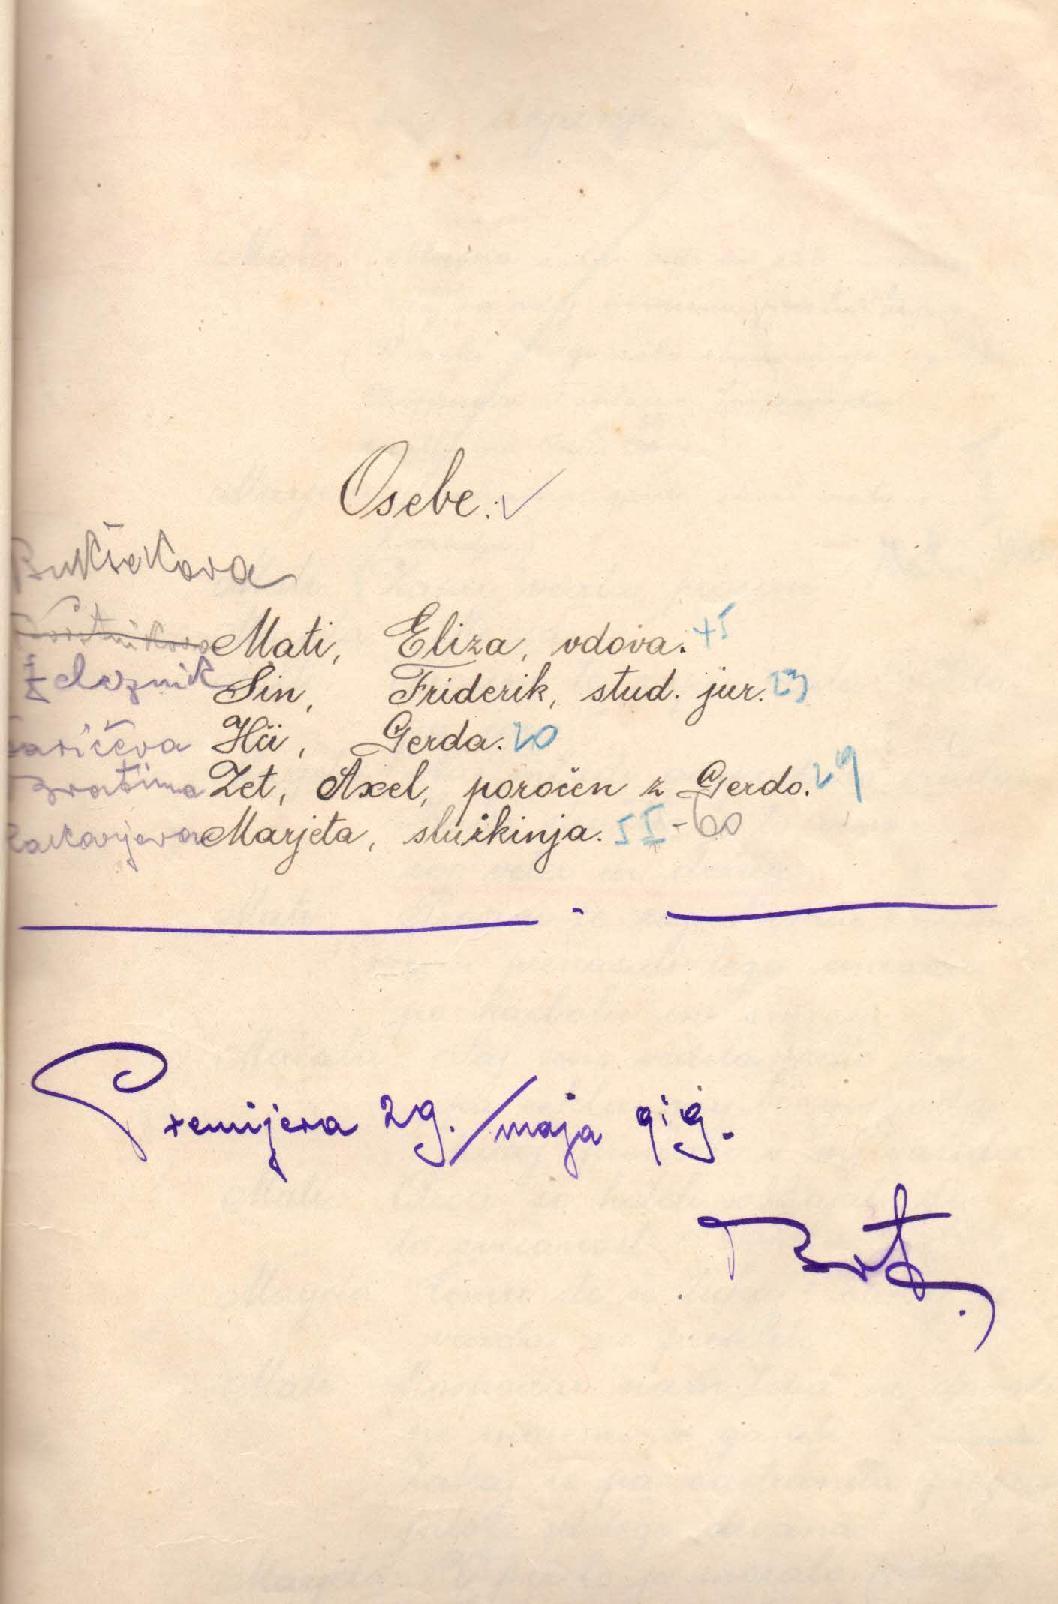 Osebe.
Bukšekova
Mati, Eliza, vdova. 45
Železnik Sin, Friderik, stud. jur. 23
Šaričeva Hči, Gerda. 20
Bratina Zet, Axel, poročen z Gerdo. 29
Rakarjeva Marjeta, služkinja. 55-60
Premijera 29./maja 919.